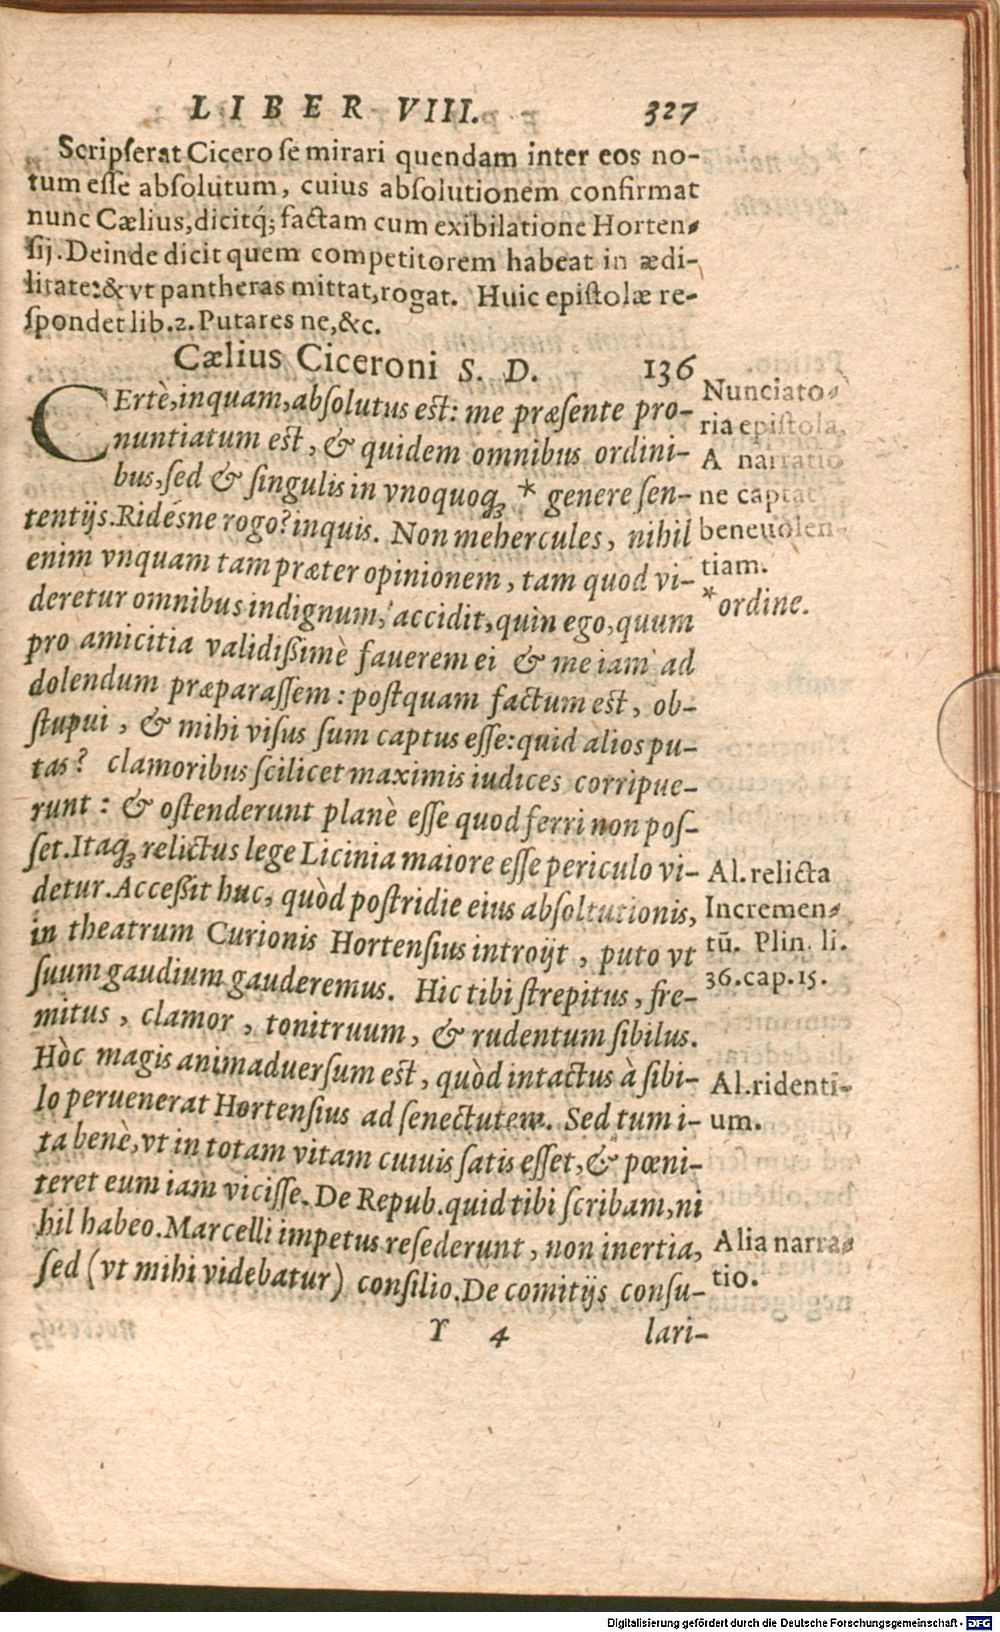 LIBER VIII. 327
Scripserat Cicero se mirari quendam inter eos no-
tum esse absolutum, cuius absolutionem confirmat
nunc Cælius, dicitq́; factam cum exibilatione Horten-
sij. Deinde dicit quem competitorem habeat in ædi-
litate: & vt pantheras mittat, rogat. Huic epistolæ re-
spondet lib. 2. Putares ne, &c.
Cælius Ciceroni S. D. 136
CErtè, inquam, absolutus est: me præsente pro-
nuntiatum est, & quidem omnibus ordini-
bus, sed & singulis in vnoquoqꝫ * genere sen-
tentijs. Ridésne rogo? inquis. Non mehercules, nihil
enim vnquam tam præter opinionem, tam quod vi-
deretur omnibus indignum, accidit, quin ego, quum
pro amicitia validißimè fauerem ei & me iam ad
dolendum præparassem: postquam factum est, ob-
stupui, & mihi visus sum captus esse: quid alios pu-
tas? clamoribus scilicet maximis iudices corripue-
runt: & ostenderunt planè esse quod ferri non pos-
set. Itaqꝫ relictus lege Licinia maiore esse periculo vi-
detur. Acceßit huc, quòd postridie eius absoltutionis,
in theatrum Curionis Hortensius introijt, puto vt
suum gaudium gauderemus. Hic tibi strepitus, fre-
mitus, clamor, tonitruum, & rudentum sibilus.
Hòc magis animaduersum est, quòd intactus à sibi-
lo peruenerat Hortensius ad senectutem. Sed tum i-
ta benè, vt in totam vitam cuiuis satis esset, & pœni-
teret eum iam vicisse. De Repub. quid tibi scribam, ni
hil habeo. Marcelli impetus resederunt, non inertia,
sed (vt mihi videbatur) consilio. De comitijs consu-
Y 4 lari-
Nunciato-
ria epistola,
A narratio
ne captat
beneuolen-
tiam.
*ordine.
Al. relicta
Incremen-
tū. Plin. li.
36. cap. 15.
Al. ridenti-
um.
Alia narra-
tio.
Digitalisierung gefördert durch die Deutsche Forschungsgemeinschaft - DFG